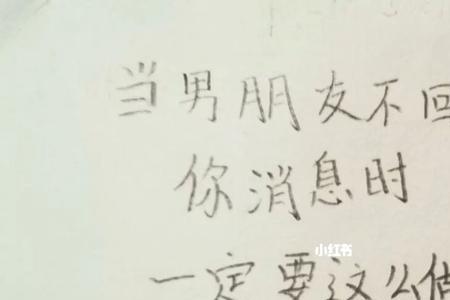 当男朋友不回
你消息时
小红书
一定要这么做